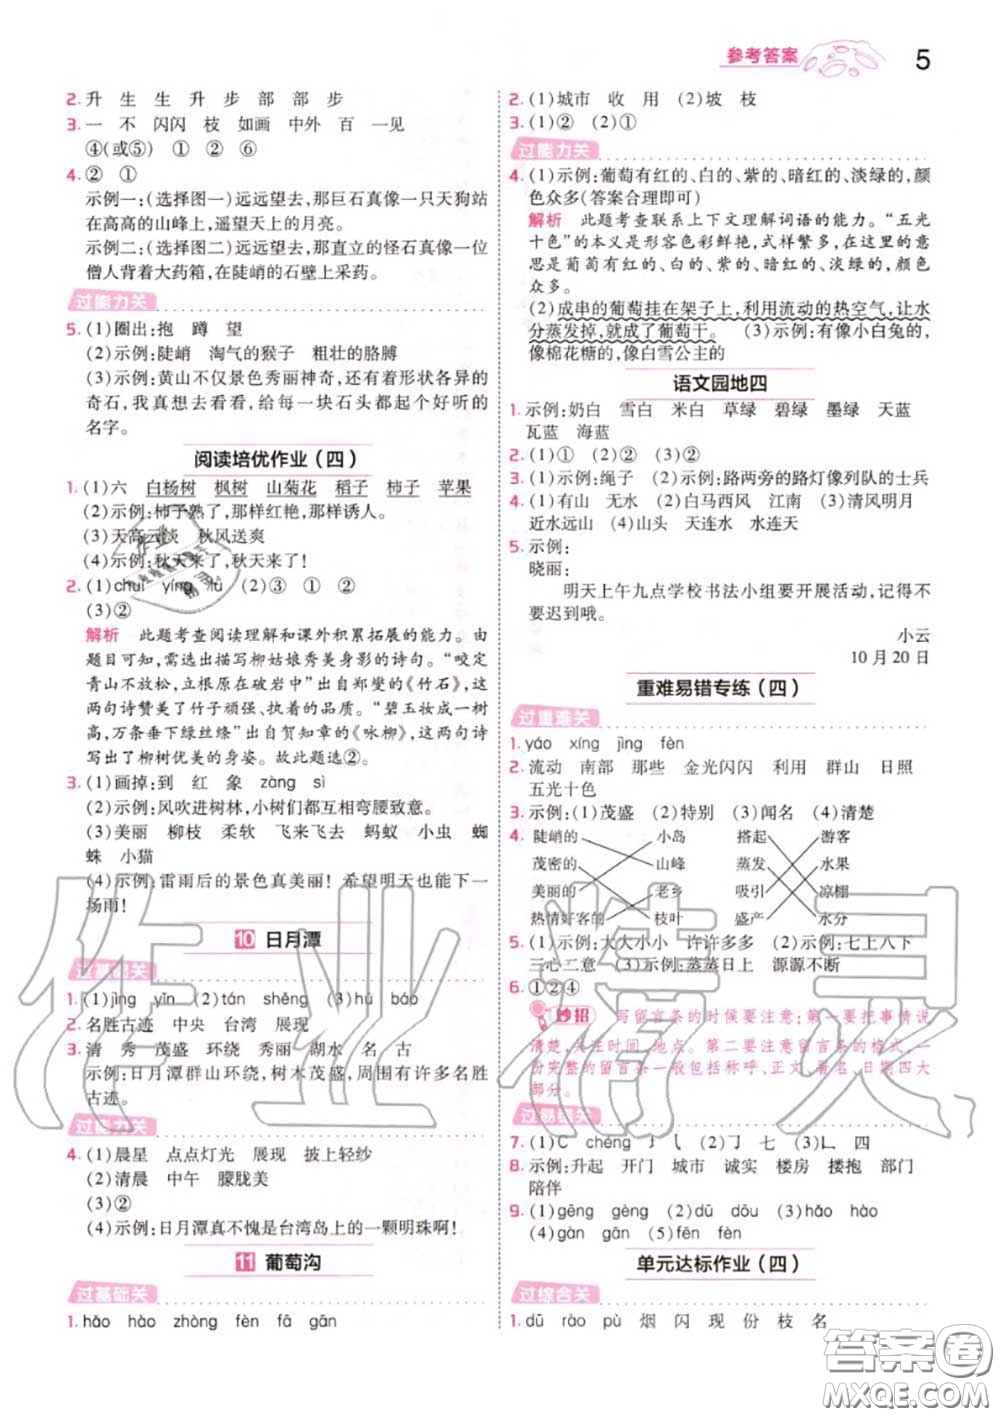 参考答案
5
2. 升 生 生 升 步 部 部 步
3. 一 不 闪闪 枝 如画 中外 百 一见
④(或⑤) ① ② ⑥
4. ② ①
示例一:(选择图一)远远望去,那巨石真像一只天狗站
在高高的山峰上,遥望天上的月亮。
示例二:(选择图二)远远望去,那直立的怪石真像一位
僧人背着大药箱,在陡峭的石壁上采药。
过能力关
5. (1)圈出:抱 蹲 望
(2)示例:陡峭 淘气的猴子 粗壮的胳膊
(3)示例:黄山不仅景色秀丽神奇,还有着形状各异的
奇石,我真想去看看,给每一块石头都起个好听的
名字。
阅读培优作业(四)
1. (1)六 白杨树 枫树 山菊花 稻子 柿子 苹果
(2)示例:柿子熟了,那样红艳,那样诱人。
(3)天高云淡 秋风送爽
(4)示例:秋天来了,秋天来了!
2. (1)chuí yíng lǜ (2)③ ① ②
(3)②
解析 此题考查阅读理解和课外积累拓展的能力。由
题目可知,需选出描写柳姑娘秀美身影的诗句。“咬定
青山不放松,立根原在破岩中”出自郑燮的《竹石》,
这两句诗赞美了竹子顽强、执着的品质。“碧玉妆成一树
高,万条垂下绿丝绦”出自贺知章的《咏柳》,这两句诗
写出了柳树优美的身姿。故此题选②。
3. (1)画掉:到 红 象 zàng sì
(2)示例:风吹进树林,小树们都互相弯腰致意。
(3)美丽 柳枝 柔软 飞来飞去 蚂蚁 小虫 蜘
蛛 小猫
(4)示例:雷雨后的景色真美丽!希望明天也能下一
场雨!
10 日月潭
过基础关
1. (1)jìng yǐn (2)tán shèng (3)hú báo
2. 名胜古迹 中央 台湾 展现
3. 清 秀 茂盛 环绕 秀丽 湖水 名 古
示例:日月潭群山环绕,树木茂盛,周围有许多名胜
古迹。
过能力关
4. (1)晨星 点点灯光 展现 披上轻纱
(2)清晨 中午 朦胧美
(3)②
(4)示例:日月潭真不愧是台湾岛上的一颗明珠啊!
11 葡萄沟
过基础关
1. hǎo hào zhòng fèn fā gān
2. (1)城市 收 用 (2)坡 枝
3. (1)② (2)①
过能力关
4. (1)示例:葡萄有红的、白的、紫的、暗红的、淡绿的,颜
色众多(答案合理即可)
解析 此题考查联系上下文理解词语的能力。“五光
十色”的本义是形容色彩鲜艳,式样繁多,在这里的意
思是葡萄有红的、白的、紫的、暗红的、淡绿的,颜色
众多。
(2)成串的葡萄挂在架子上,利用流动的热空气,让水
分蒸发掉,就成了葡萄干。 (3)示例:有像小白兔的,
像棉花糖的,像白雪公主的
语文园地四
1. 示例:奶白 雪白 米白 草绿 碧绿 墨绿 天蓝
瓦蓝 海蓝
2. (1)① (2)① (2)② (3)②
3. (1)示例:绳子 (2)示例:路两旁的路灯像列队的士兵
4. (1)有山 无水 (2)白马西风 江南 (3)清风明月
近水远山 (4)山头 天连水 水连天
5. 示例:
晓丽:
明天上午九点学校书法小组要开展活动,记得不
要迟到哦。
小云
10月20日
重难易错专练(四)
过重难关
1. yáo xíng jìng fèn
2. 流动 南部 那些 金光闪闪 利用 群山 日照
五光十色
3. 示例:(1)茂盛 (2)特别 (3)闻名 (4)清楚
4. 陡峭的 小岛 搭起 游客
茂密的 山峰 蒸发 水果
美丽的 老乡 吸引 凉棚
热情好客的 枝叶 盛产 水分
5. (1)示例:大大小小 许许多多 (2)示例:七上八下
三心二意 (3)示例:蒸蒸日上 源源不断
6. ①②④
妙招 写留言条的时候要注意:第一要把事情说
清楚,关注时间、地点。第二要注意留言条的格式,一
份完整的留言条一般包括称呼、正文、署名、日期四大
部分。
过易错关
7. (1)C chēng 丿 乀 (2)㇆ 七 (3)乚 四
8. 示例:升起 开门 城市 诚实 楼房 搂抱 部门
陪伴
9. (1)gēng gèng (2)dū dōu (3)hǎo hào
(4)gàn gān (5)fēn fèn
单元达标作业(四)
过综合关
1. dū rào pù 烟 闪 现 份 枝 名
作业精灵
答案圈
MXQE.COM